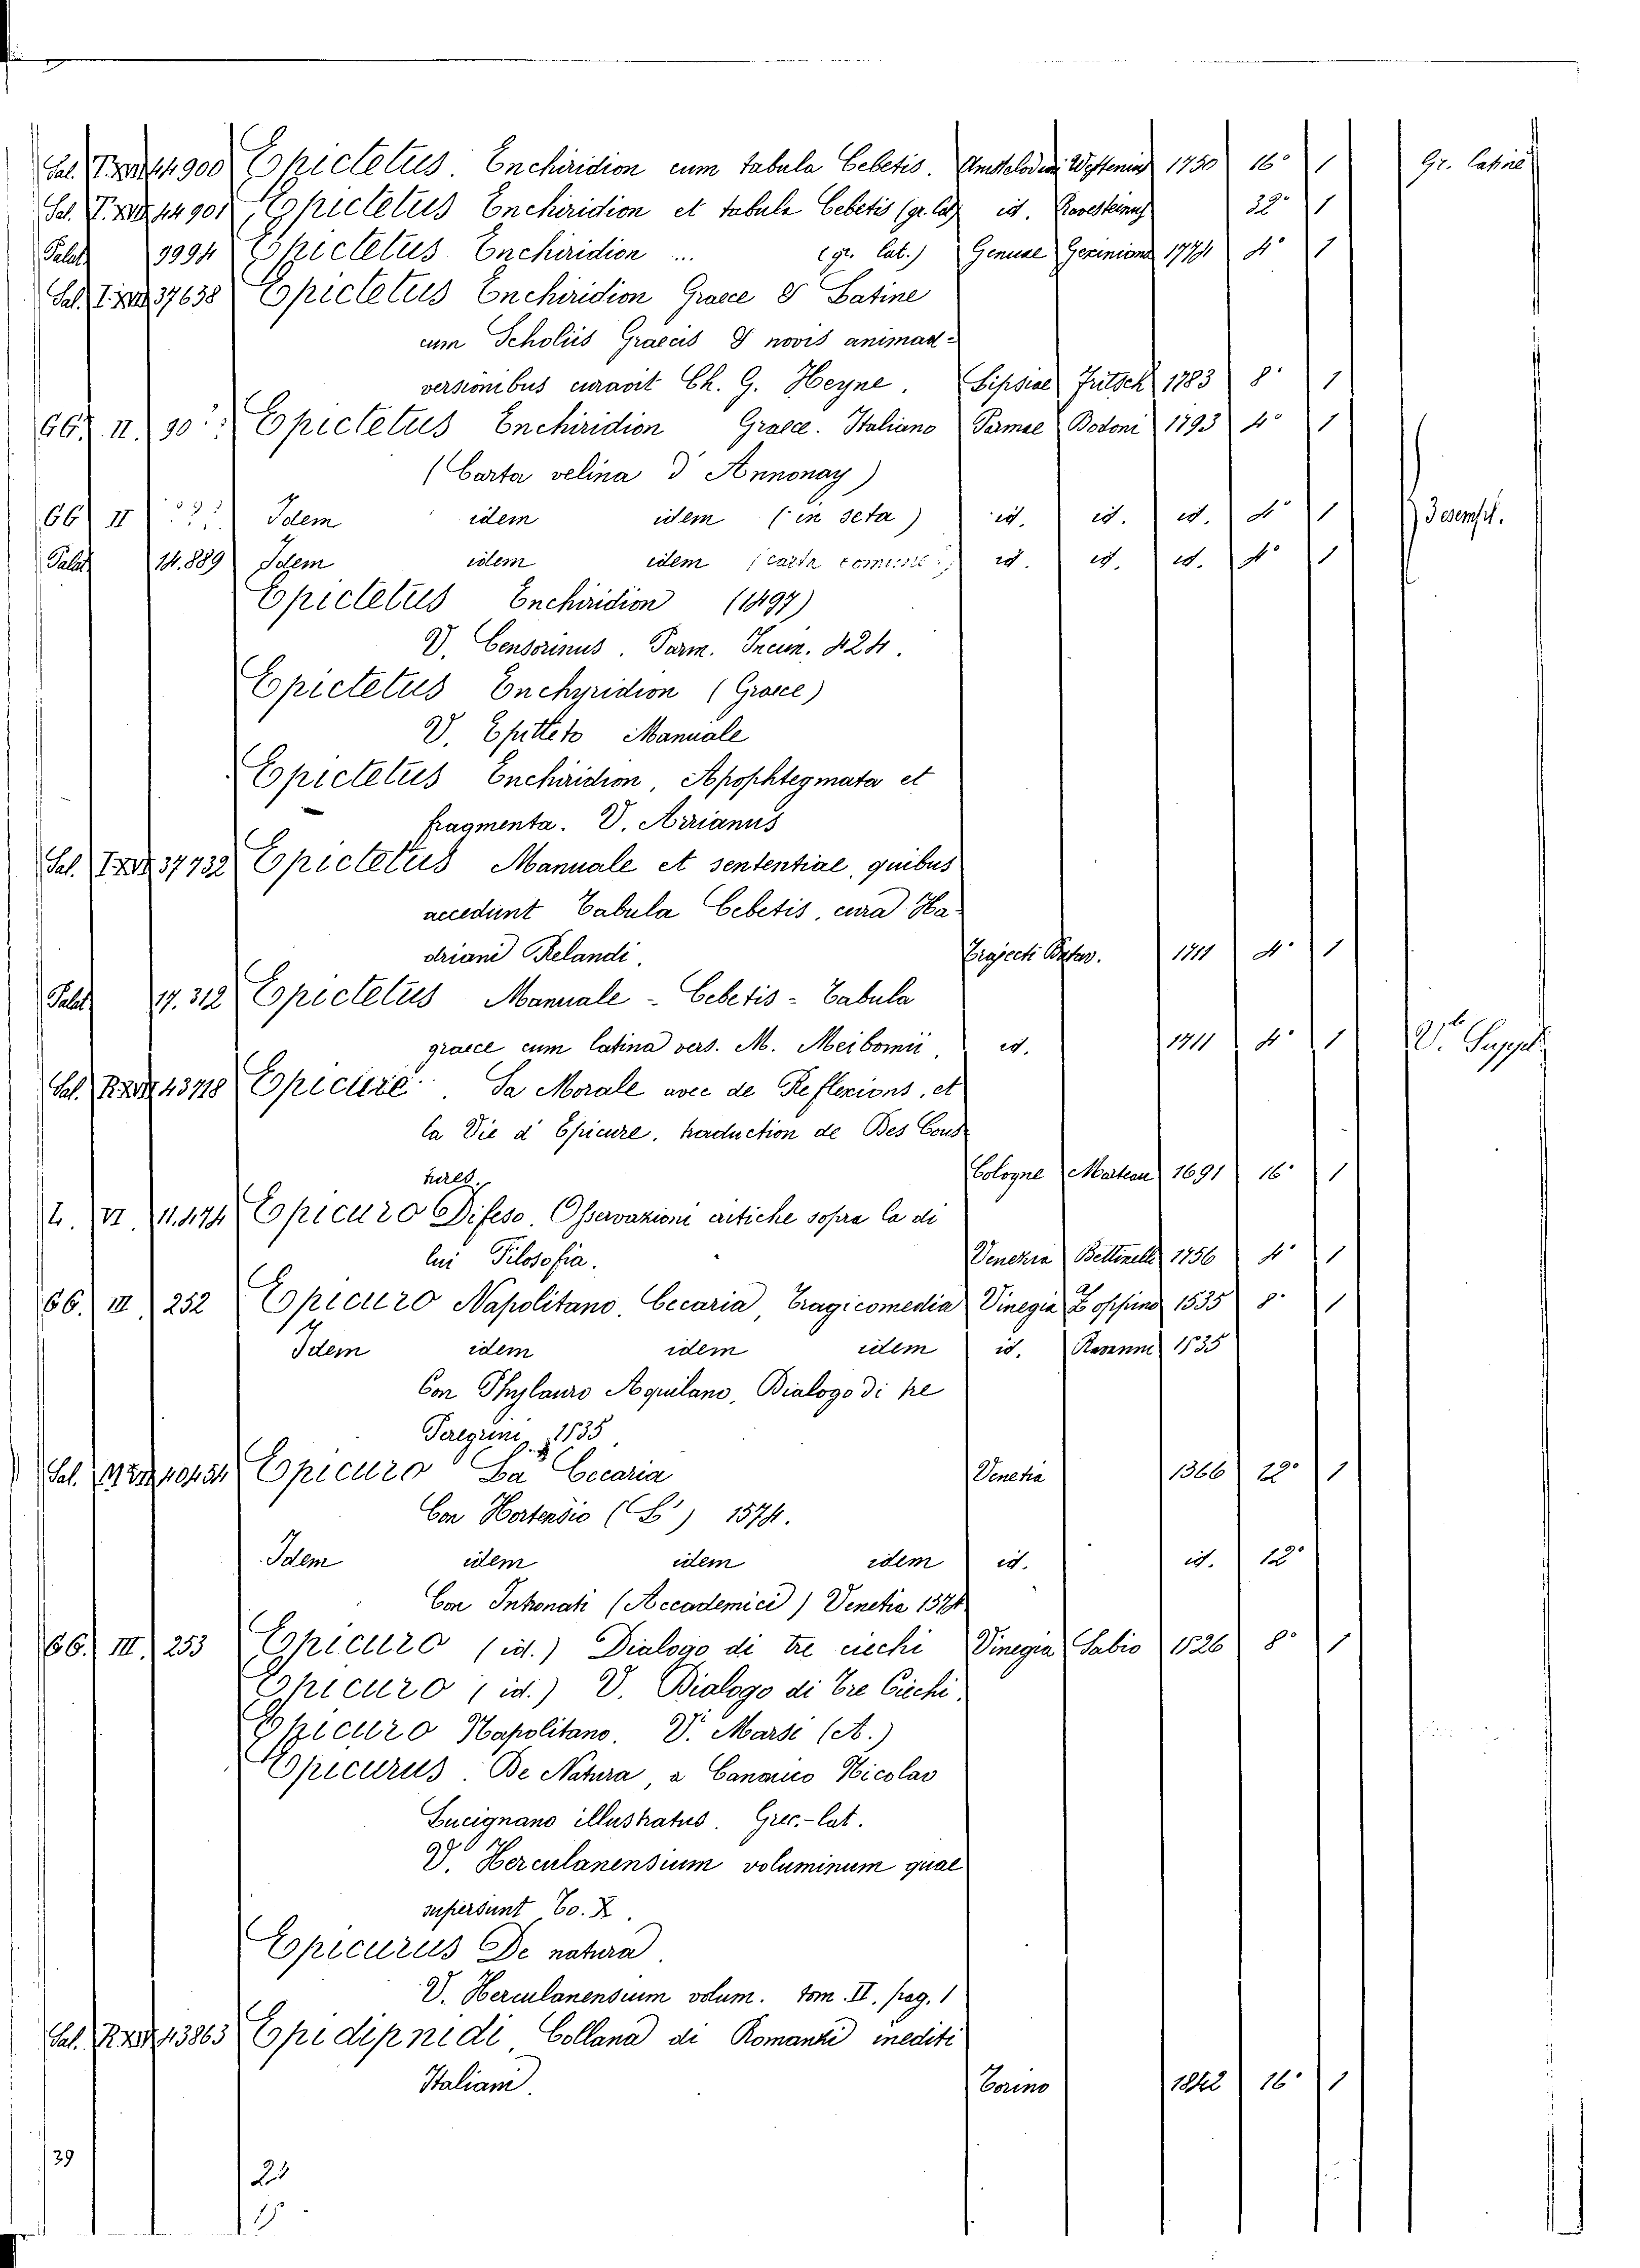 Sal. 44900 Epictetus. Enchiridion cum tabula Cebetis. Amstelodami Wettenius 1750 16° 1 Gr. Latine
Sal. 44901 Epictetus Enchiridion et tabula Cebetis (gr. lat) id. Ravesteinus 32° 1
Palat 9994 Epictetus Enchiridion ... (gr. lat.) Genuae Gexiniana 4° 1
Sal. 37638 Epictetus Enchiridion Graece & Latine
cum Scholiis Graecis & novis animad-
versionibus curavit Ch. G. Heyne. Lipsiae Fritsch 1783 8° 1
66. II. 30 Epictetus Enchiridion Graece. Italiano Parmae Bodoni 1793 4° 1
(Carta velina d'Annonay)
66 II Idem idem idem (in seta) id. id. id. 4° 1
Palat 14.889 Idem idem idem (carta comune) id. id. id. 4° 1
Epictetus Enchiridion (1497)
V. Censorinus. Parm. Incun. 424.
Epictetus Enchyridion (Graece)
V. Epitteto Manuale
Epictetus Enchiridion, Apophtegmata et
fragmenta. V. Arrianus
Sal. 37732 Epictetus Manuale et sententiae, quibus
accedunt Tabula Cebetis, cura Ha-
driani Relandi. Trajecti Batav. 1711 4° 1
Palat 17.312 Epictetus Manuale - Cebetis - Tabula
graece cum latina vers. M. Meibomii, id. 1711 4° 1 V. Suppl.
Sal. 43718 Epicure. Sa Morale avec de Reflexions, et
la Vie d'Epicure, traduction de Des Cous
tures. Cologne Marteau 1691 16° 1
L. VI. 11.474 Epicuro Difeso. Osservazioni critiche sopra la di
lui Filosofia. Venezia Bettinelli 1756 4° 1
66. III 252 Epicuro Napolitano. Cecaria, Tragicomedia Vinegia Zoppino 1535 8° 1
Idem idem idem idem id. 1535
Con Phylauro Aquilano, Dialogo di tre
Peregrini, 1535
Sal. 40454 Epicuro La Cecaria Venetia 1566 12° 1
Con Hortensio (L) 1574.
Idem idem idem idem id. id. 12°
Con Intronati (Accademici) Venetia 1574
66. III. 253 Epicuro (id.) Dialogo di tre ciechi Vinegia Sabio 1526 8° 1
Epicuro (id.) V. Dialogo di Tre Ciechi.
Epicuro Napolitano. V. Marsi (A.)
Epicurus. De Natura, a Canonico Nicolao
Lucignano illustratus. Grec.-lat.
V. Herculanensium voluminum quae
supersunt To. X.
Epicurus De natura.
V. Herculanensium volum. tom. II. pag. 1
Sal. 43863 Epidipnidi, Collana di Romanzi inediti
Italiani. Torino 1842 16° 1
29
21